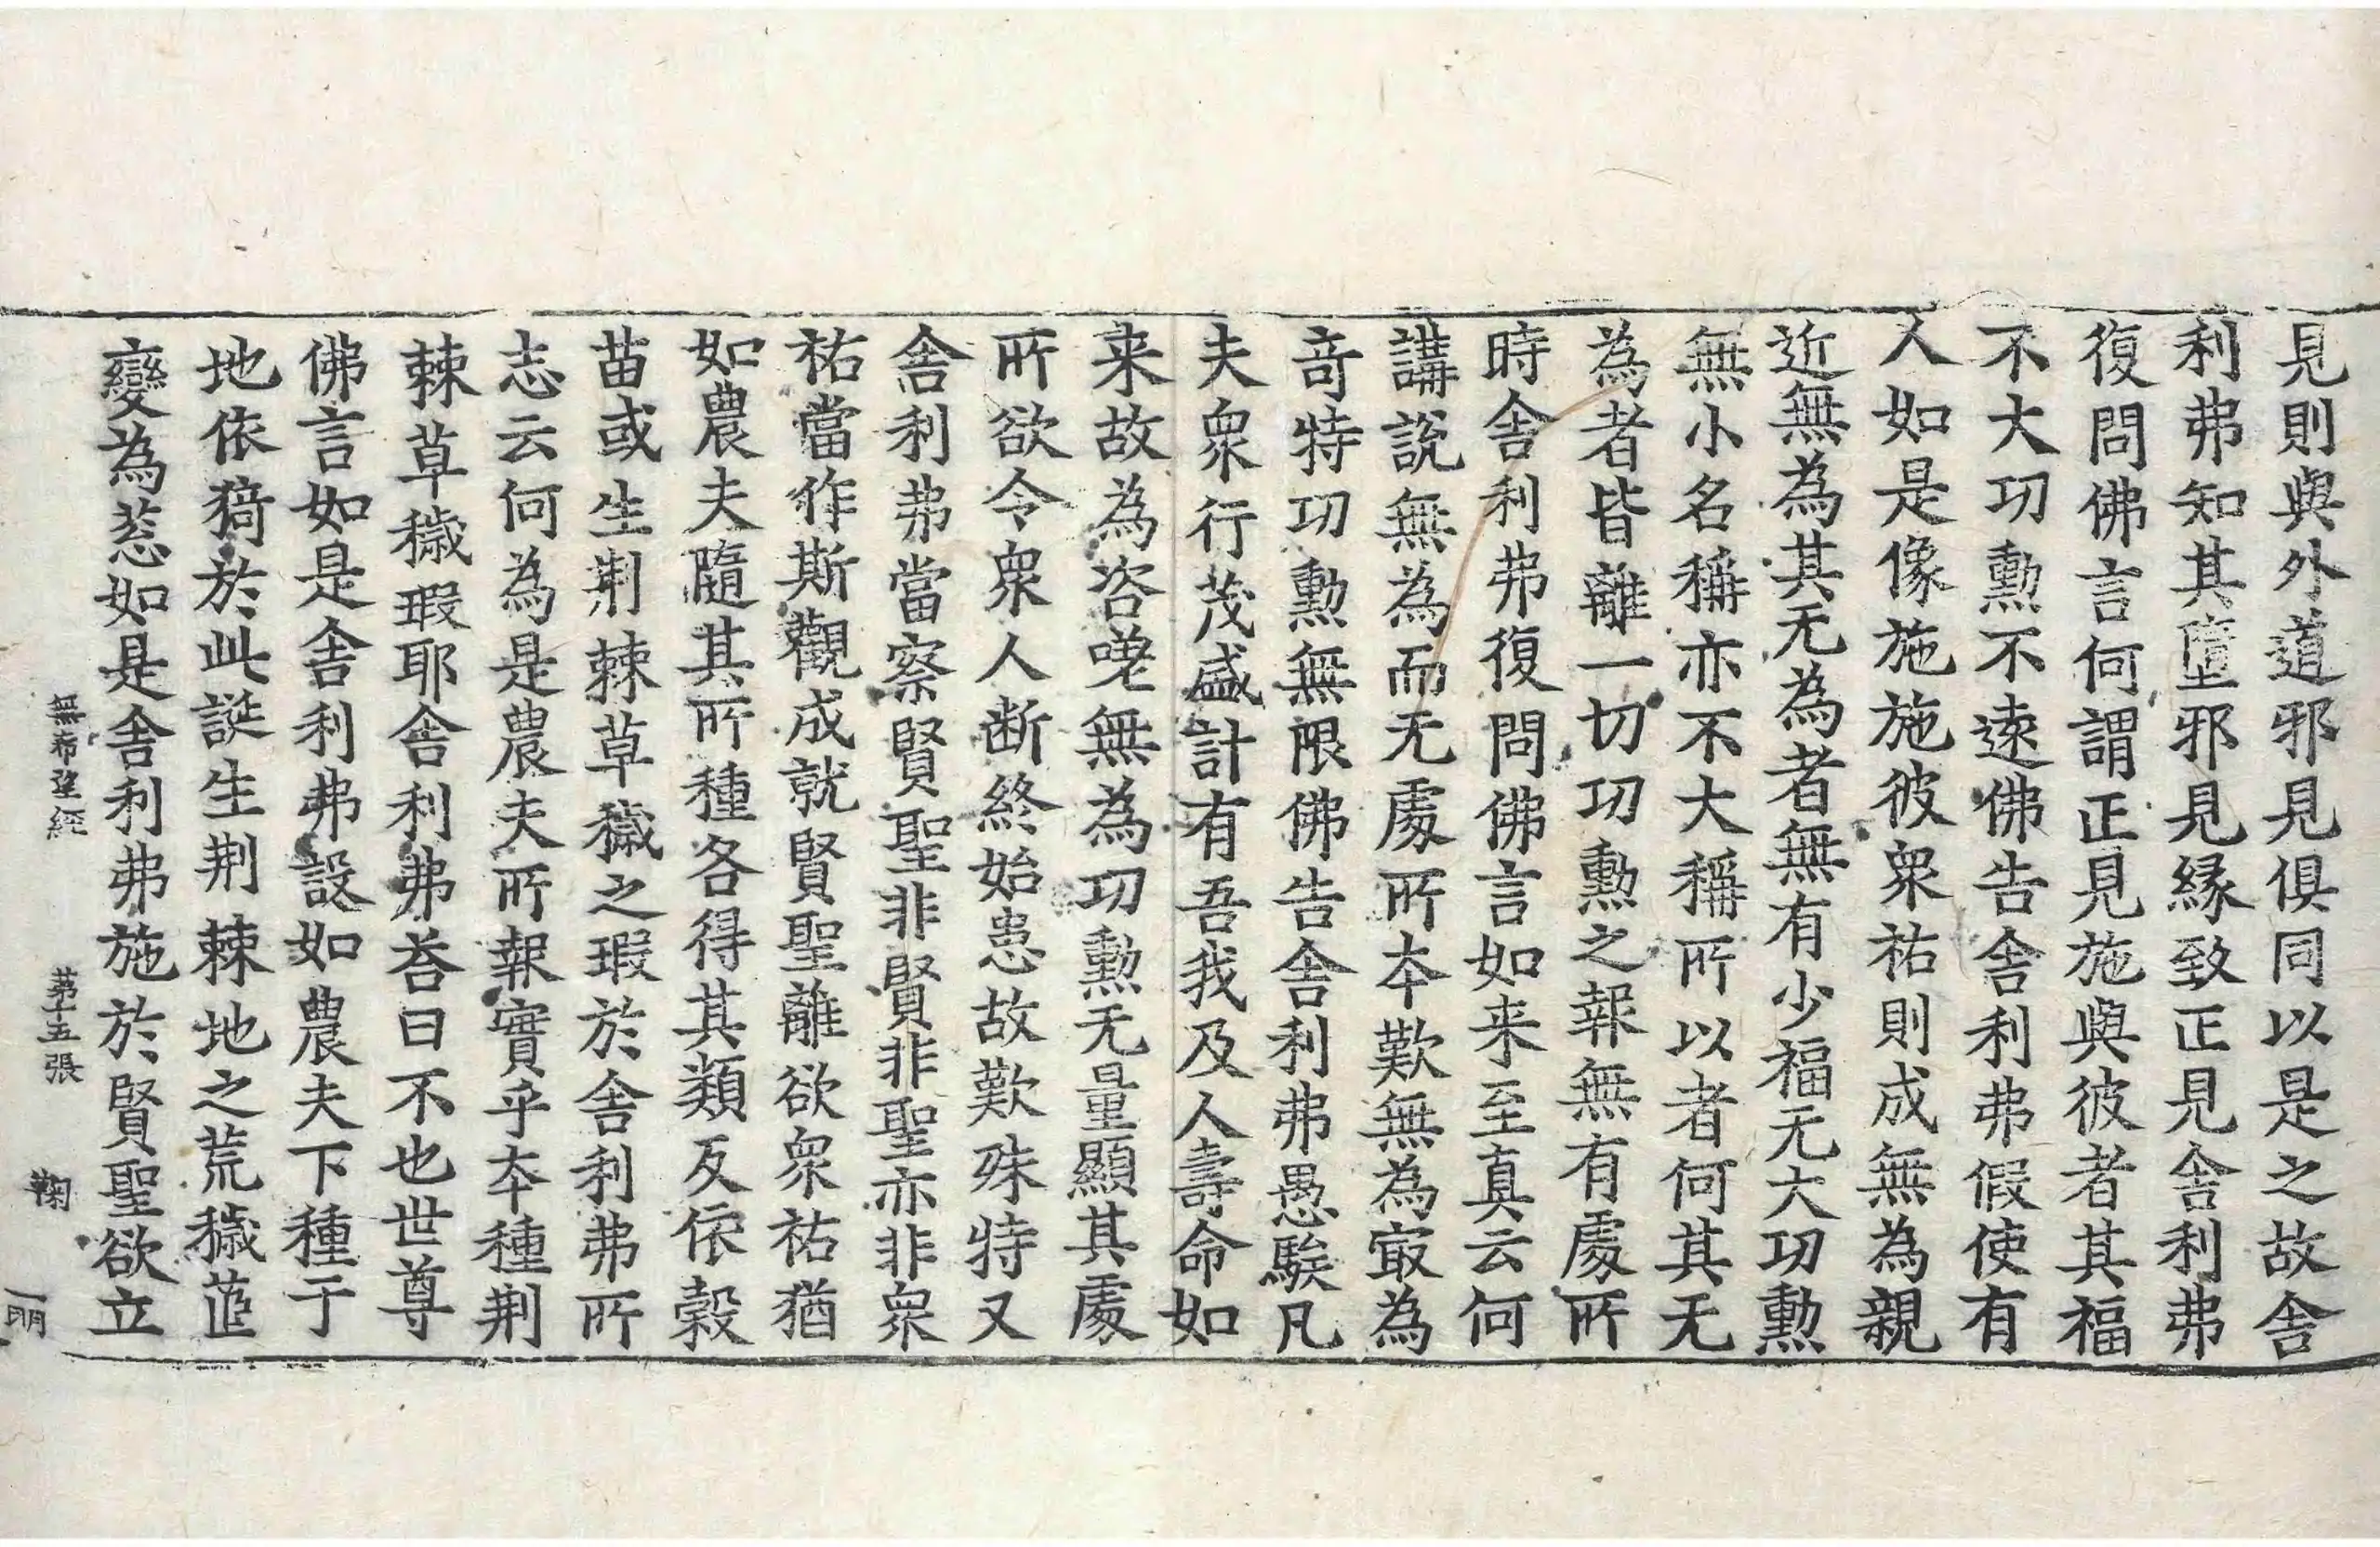 見則與外道邪見俱同以是之故舍
利弗知其墮邪見緣致正見舍利弗
復問佛言何謂正見施與彼者其福
不大功勲不遠佛告舍利弗假使有
人如是像施施彼衆祐則成無為親
近無為其无為者無有少福无大功勲
無小名稱亦不大稱所以者何其无
為者皆離一切功勲之報無有處所
時舍利弗復問佛言如来至真云何
講說無為而无處所本歎無為㝡為
竒特功勲無限佛告舍利弗愚騃凡
夫衆行茂盛計有吾我及人壽命如
来故為咨嗟無為功勲无量顯其處
所欲令衆人断終始患故歎殊特又
舍利弗當察賢聖非賢非聖亦非衆
祐當作斯觀成就賢聖離欲衆祐猶
如農夫隨其所種各得其類反依穀
苗或生荆棘草穢之瑕於舍利弗所
志云何為是農夫所報實乎本種荆
棘草穢瑕耶舍利弗荅曰不也世尊
佛言如是舍利弗設如農夫下種于
地依猗於此誕生荆棘地之荒穢葅
變為惡如是舍利弗施於賢聖欲立
無希望經 苐十五張 鞠
一明